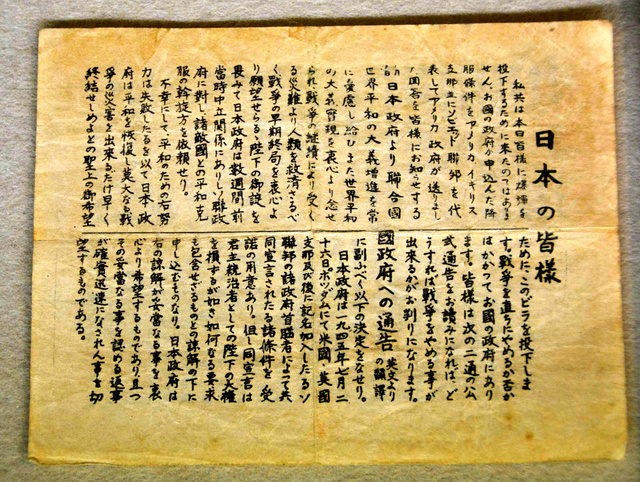 日本の皆様
私共は本日皆様に爆弾を
投下するために来たのではありま
せん。お國の政府が申込んだ降
服條件をアメリカ イギリス
支那並にソビエット聯邦を代
表してアメリカ政府が送りまし
た囘答を皆様にお知らせする
ために、このビラを投下しま
す。戦争を直ちにやめるか否か
はかかつてお國の政府にあり
ます。皆様は次の二通の公
式通告をお讀みになれば、ど
うすれば戦争をやめる事が
出来るかがお判りになります。
日本政府より聯合國政府への通告 英文よりの飜譯
世界平和の大義増進を常
に憂慮し給ひまた世界平和
の大義實現を衷心より念ぜ
られ戦争の継續により受く
る災難より人類を救済するべ
く戦争の早期終局を衷心よ
り願望せらるる陛下の御諚を
畏みて日本政府は数週間前
當時中立関係にありしソ聯政
府に對し諸敵國との平和克
服の斡旋方を依頼せり。
不幸にして、平和のための右努
力は失敗したるを以て日本政
府は平和を恢復し莫大なる戦
争の災害を出来るだけ早く
終結せしめよとの聖上の御希望
に副ふべく以下の決定をなせり。
日本政府は一九四五年七月二
十六日ポツダムにて米國、英國
支那及び後に記名加入したるソ
聯邦の諸政府首脳者によつて共
同宣言されたる諸條件を受
諾の用意あり。但し同宣言は
君主統治者としての陛下の大権
を損するが如き如何なる要求
も包含せざるものとの諒解の下に
申し込むものなり。日本政府は
右の諒解が妥當なる事を衷
心より希望するものであり、且つ
その妥當なる事を認める返事
が確實迅速になされん事を切
望するものである。